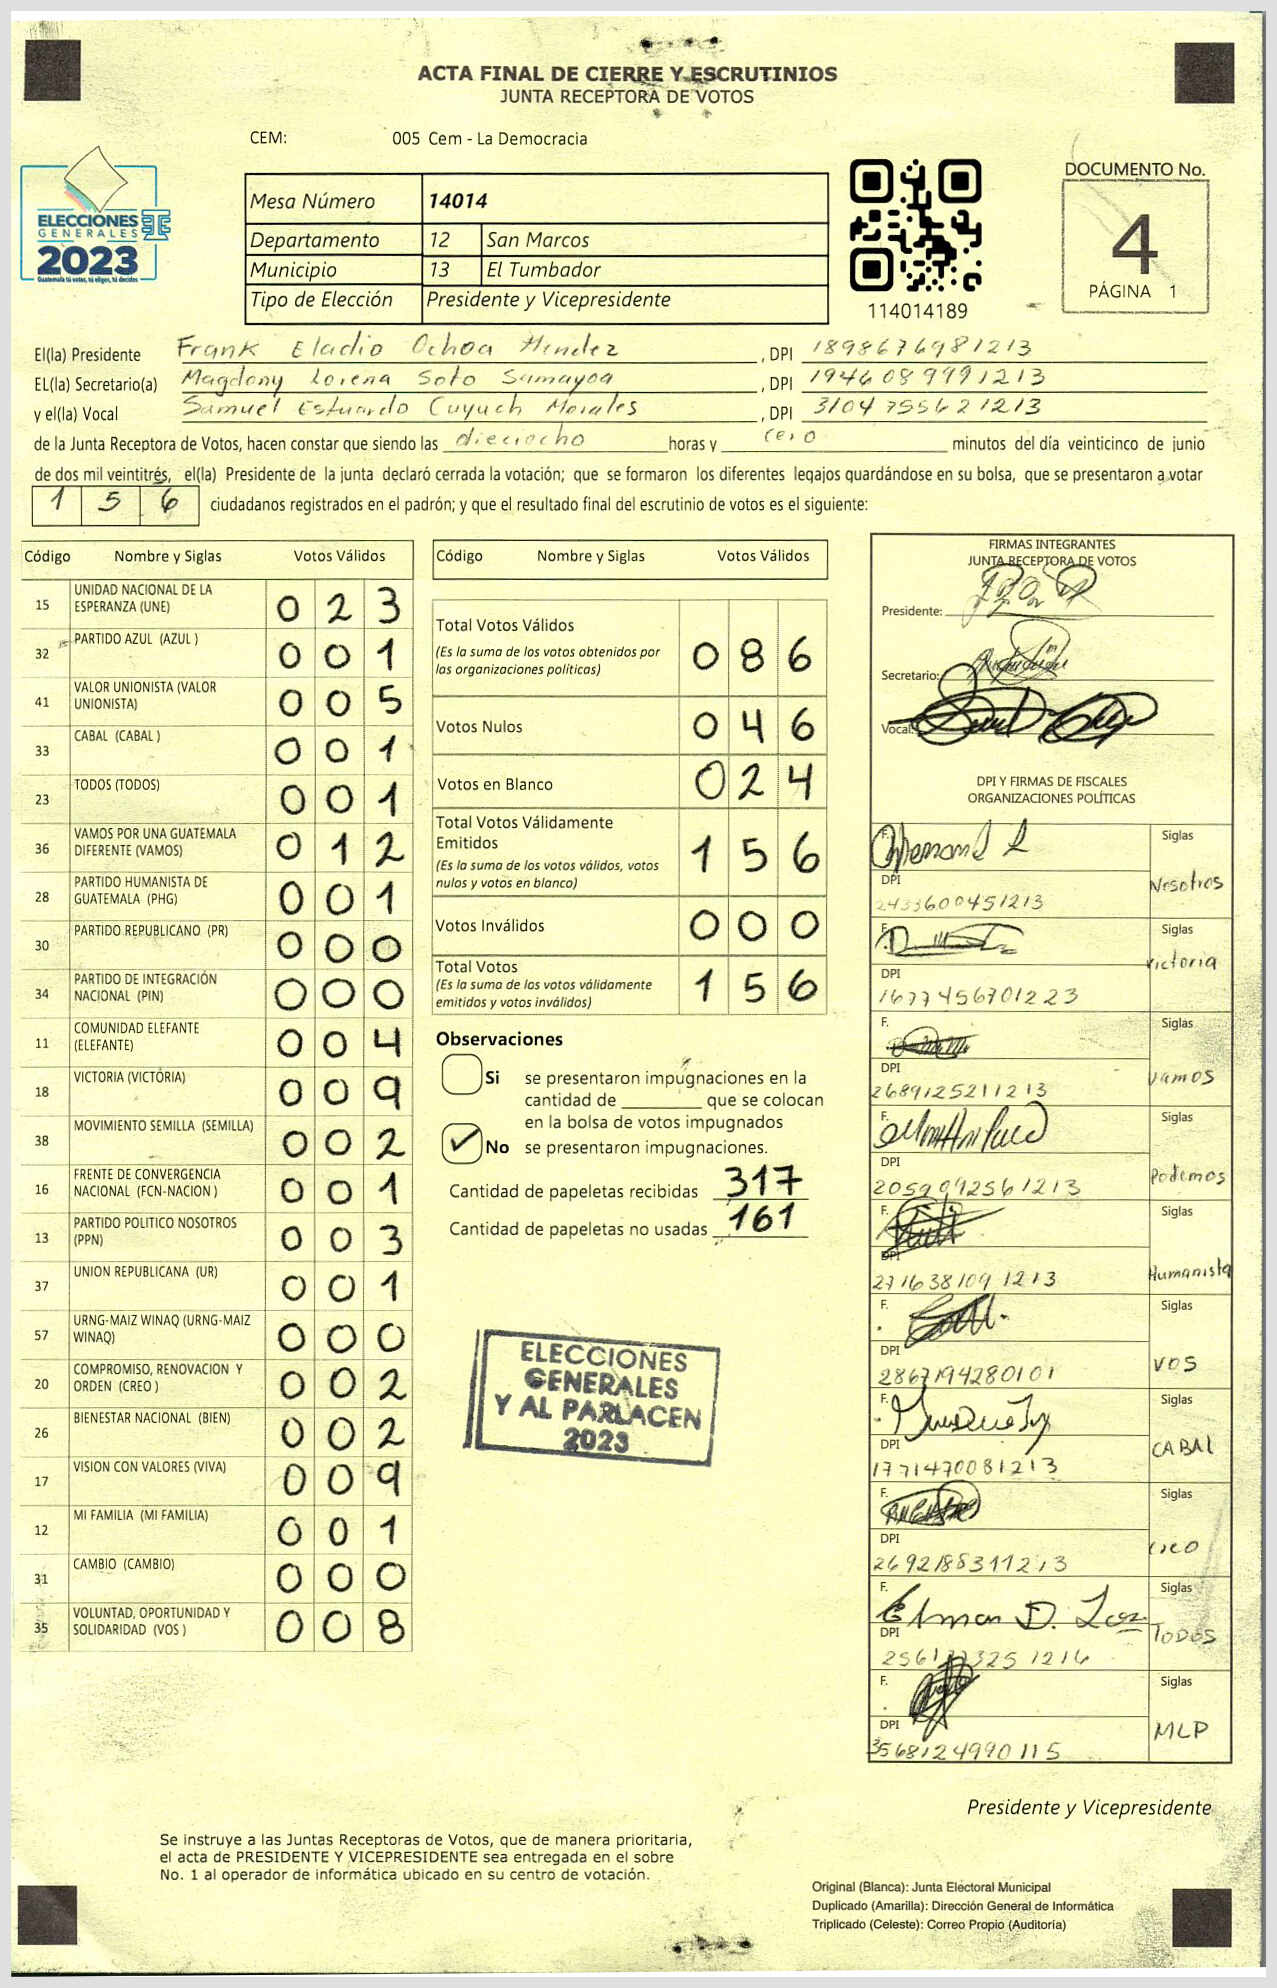 ACTA FINAL DE CIERRE Y ESCRUTINIOS
JUNTA RECEPTORA DE VOTOS
CEM: 005 Cem - La Democracia
ELECCIONES
GENERALES
2023
Guatemala tú votas, tú eliges, tú decides
Mesa Número 14014
Departamento 12 San Marcos
Municipio 13 El Tumbador
Tipo de Elección Presidente y Vicepresidente
114014189
DOCUMENTO No.
4
PÁGINA 1
El(la) Presidente Frank Eladio Ochoa Mendez, DPI 1898676981213
EL(la) Secretario(a) Magdony Lorena Soto Samayoa, DPI 1946089991213
y el(la) Vocal Samuel Estuardo Cuyuch Morales, DPI 3104755621213
de la Junta Receptora de Votos, hacen constar que siendo las dieciocho horas y cero minutos del día veinticinco de junio
de dos mil veintitrés, el(la) Presidente de la junta declaró cerrada la votación; que se formaron los diferentes legajos guardándose en su bolsa, que se presentaron a votar
156 ciudadanos registrados en el padrón; y que el resultado final del escrutinio de votos es el siguiente:
Código Nombre y Siglas Votos Válidos
15 UNIDAD NACIONAL DE LA ESPERANZA (UNE) 023
32 PARTIDO AZUL (AZUL ) 001
41 VALOR UNIONISTA (VALOR UNIONISTA) 005
33 CABAL (CABAL ) 001
23 TODOS (TODOS) 001
36 VAMOS POR UNA GUATEMALA DIFERENTE (VAMOS) 012
28 PARTIDO HUMANISTA DE GUATEMALA (PHG) 001
30 PARTIDO REPUBLICANO (PR) 000
34 PARTIDO DE INTEGRACIÓN NACIONAL (PIN) 000
11 COMUNIDAD ELEFANTE (ELEFANTE) 004
18 VICTORIA (VICTORIA) 009
38 MOVIMIENTO SEMILLA (SEMILLA) 002
16 FRENTE DE CONVERGENCIA NACIONAL (FCN-NACION ) 001
13 PARTIDO POLITICO NOSOTROS (PPN) 003
37 UNION REPUBLICANA (UR) 001
57 URNG-MAIZ WINAQ (URNG-MAIZ WINAQ) 000
20 COMPROMISO, RENOVACION Y ORDEN (CREO ) 002
26 BIENESTAR NACIONAL (BIEN) 002
17 VISION CON VALORES (VIVA) 009
12 MI FAMILIA (MI FAMILIA) 001
31 CAMBIO (CAMBIO) 000
35 VOLUNTAD, OPORTUNIDAD Y SOLIDARIDAD (VOS ) 008
Código Nombre y Siglas Votos Válidos
Total Votos Válidos 086
(Es la suma de los votos obtenidos por las organizaciones políticas)
Votos Nulos 046
Votos en Blanco 024
Total Votos Válidamente Emitidos 156
(Es la suma de los votos válidos, votos nulos y votos en blanco)
Votos Inválidos 000
Total Votos 156
(Es la suma de los votos válidamente emitidos y votos inválidos)
Observaciones
Si se presentaron impugnaciones en la
cantidad de ________ que se colocan
en la bolsa de votos impugnados
✓ No se presentaron impugnaciones.
Cantidad de papeletas recibidas 317
Cantidad de papeletas no usadas 161
ELECCIONES
GENERALES
Y AL PARLACEN
2023
FIRMAS INTEGRANTES
JUNTA RECEPTORA DE VOTOS
Presidente:
Secretario:
Vocal:
DPI Y FIRMAS DE FISCALES
ORGANIZACIONES POLÍTICAS
F. Siglas Nosotros
DPI 2433600451213
F. Siglas Victoria
DPI 1677456701223
F. Siglas Vamos
DPI 2689125211213
F. Siglas Podemos
DPI 2059992561213
F. Siglas Humanista
DPI 2716381091213
F. Siglas VOS
DPI 2867194280101
F. Siglas CABAL
DPI 1771470081213
F. Siglas CREO
DPI 2692188311213
F. Siglas TODOS
DPI
F. Siglas MLP
DPI 3568124990115
Presidente y Vicepresidente
Se instruye a las Juntas Receptoras de Votos, que de manera prioritaria,
el acta de PRESIDENTE Y VICEPRESIDENTE sea entregada en el sobre
No. 1 al operador de informática ubicado en su centro de votación.
Original (Blanca): Junta Electoral Municipal
Duplicado (Amarilla): Dirección General de Informática
Triplicado (Celeste): Correo Propio (Auditoría)